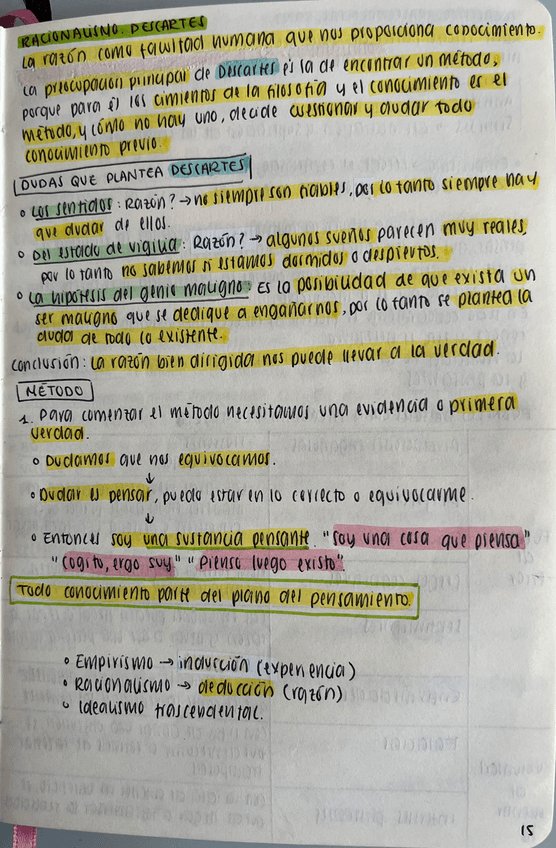 RACIONALISMO. DESCARTES
La razón como facultad humana que nos proposciona conocimiento.
La preocupación principal de Descartes es la de encontrar un método,
porque para él los cimientos de la filosofía y el conocimiento es el
método, y cómo no hay uno, decide cuestionar y dudar todo
conocimiento previo.
DUDAS QUE PLANTEA DESCARTES
Los sentidos: Razón? → no siempre son fiables, por lo tanto siempre hay
que dudar de ellos.
Del estado de vigilia: Razón? → algunos sueños parecen muy reales,
por lo tanto no sabemos si estamos dormidos o despiertos.
La hipótesis del genio maligno: Es la posibilidad de que exista un
ser maligno que se dedique a engañarnos, por lo tanto se plantea la
duda de todo lo existente.
Conclusión: La razón bien dirigida nos puede llevar a la verdad.
MÉTODO
1. Para comentar el método necesitamos una evidencia o primera
verdad.
Dudamos que nos equivocamos.
↓
Dudar es pensar, puedo estar en lo correcto o equivocarme.
↓
Entonces soy una sustancia pensante. "Soy una cosa que piensa"
"Cogito, ergo suy" "Pienso luego existo".
Todo conocimiento parte del plano del pensamiento.
Empirismo → inducción (experiencia)
Racionalismo → deducción (razón)
Idealismo trascendental.
15